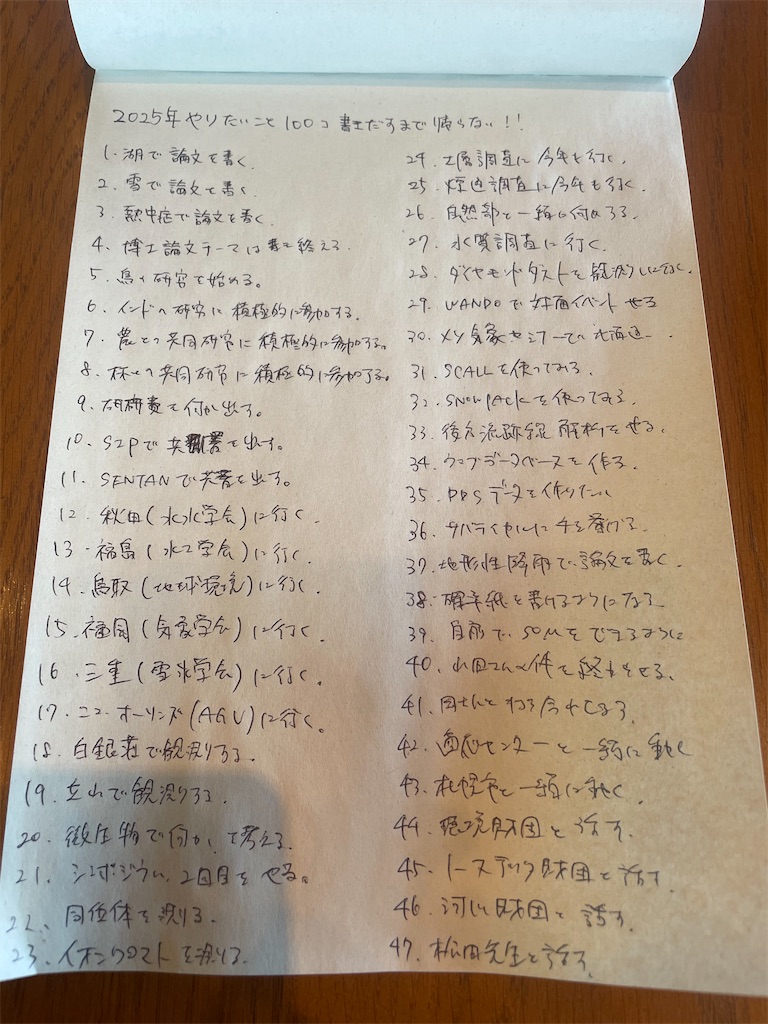 2025年やりたいこと100コ 書きだすまで帰らない!!
1. 湖で論文を書く
2. 雪で論文を書く
3. 熱中症で論文を書く
4. 博士論文テーマは書き終える
5. 鳥の研究を始める。
6. インドの研究に積極的に参加する。
7. 農との共同研究に積極的に参加する。
8. 林との共同研究に積極的に参加する。
9. 研究費を何か出す。
10. S2Pで共著を出す。
11. SENTANで共著を出す。
12. 秋田(水水学会)に行く.
13. 福島(水工学会)に行く.
14. 鳥取(地球環境)に行く.
15. 福岡(気象学会)に行く.
16. 三重(雪氷学会)に行く。
17. ニューオーリンズ(AGU)に行く。
18. 白銀荘で観測する
19. 立山で観測する.
20. 微生物で何か、を考える.
21. シンポジウム、2回目をやる。
22. 同位体を測る.
23. イオンクロストを測る
24. 工層調査に今年も行く.
25. 調査に今年も行く.
26. 自然部と一緒に何かする.
27. 水質調査に行く.
28. ダイヤモンドダストを観測しに行く.
29. WANDOで対面イベントやる
30. XY気象セミナーで北海道へ
31. SCALLを使ってみる.
32. SNOWPACKを使ってみる.
33. 後方流跡線解析をやる.
34. ウェブデータベースを作る.
35. PPSデータを作りたい
36. サバライヤルに手を挙げる.
37. 地形性降雨で論文を書く.
38. 確率紙を書けるようになる
39. 自前でSOMをできるように
40. 山田さんの件を終わらせる.
41. 打ち合わせする.
42. 適応センターと一緒に動く
43. 札幌市と一緒に動く.
44. 環境財団と話す.
45. トーステック財団と話す.
46. 河川財団と話す.
47. 松田先生と話す.